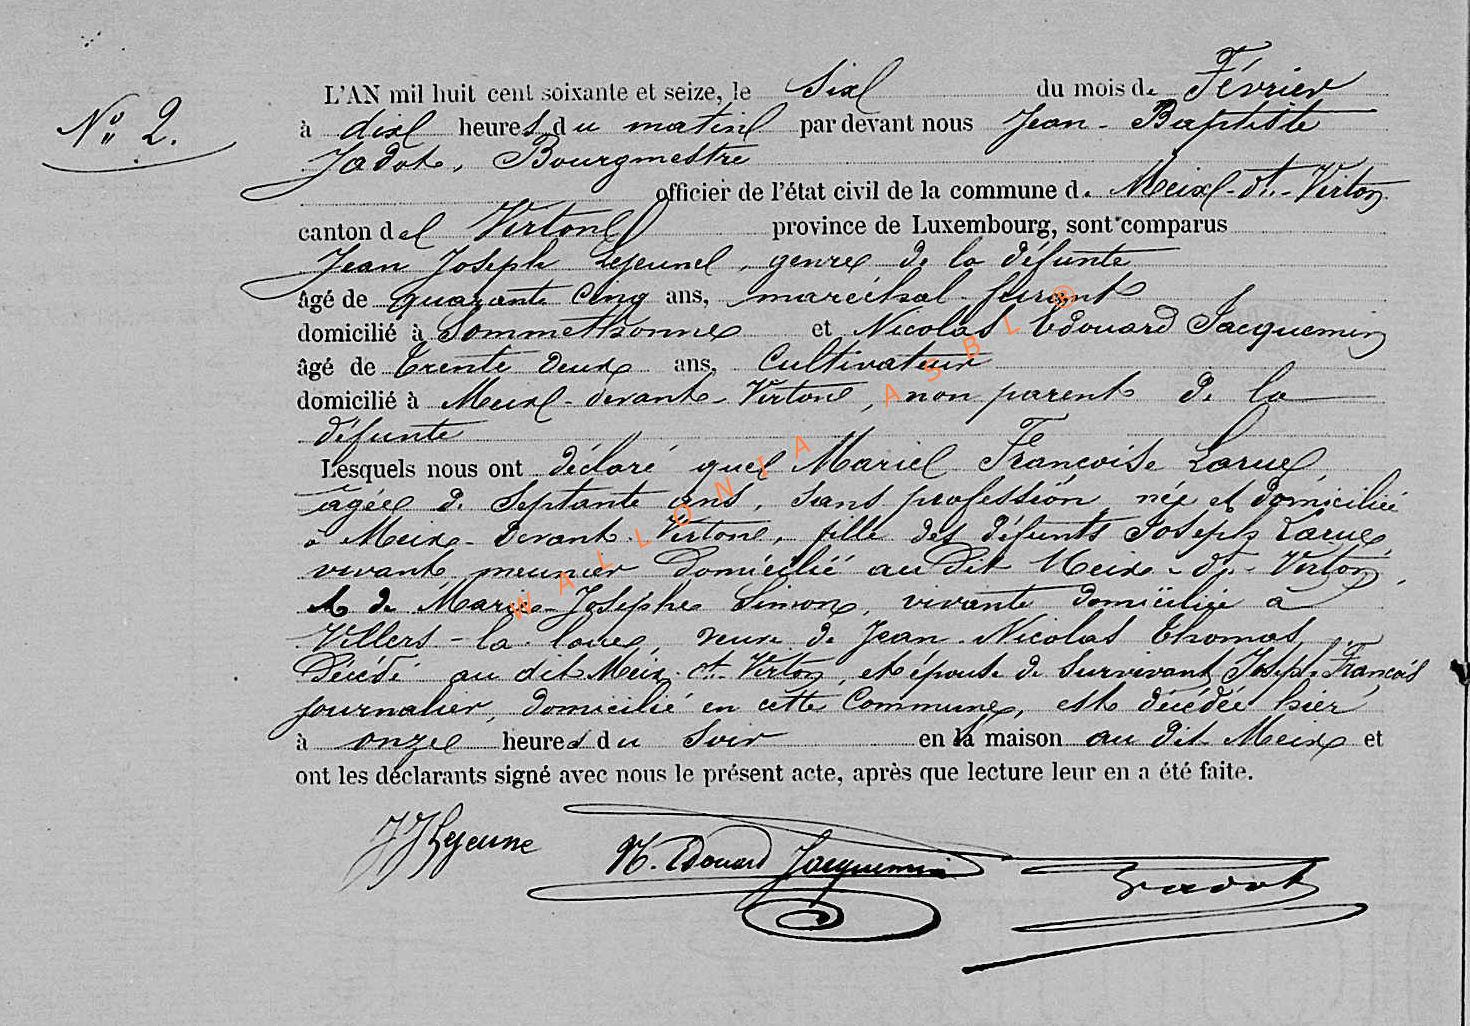 N° 2.
L'AN mil huit cent soixante et seize, le Six du mois de Février
à dix heures du matin par devant nous Jean-Baptiste
Jadot, Bourgmestre
officier de l'état civil de la commune de Meix-dt-Virton
canton de Virton province de Luxembourg, sont comparus
Jean Joseph Lejeune, genre de la défunte
âgé de quarante cinq ans, maréchal ferrant
domicilié à Sommethonne et Nicolas Edouard Jacquemin
âgé de trente deux ans, Cultivateur
domicilié à Meix-devant-Virton, non parent de la
défunte
Lesquels nous ont déclaré que Marie Françoise Larue
agée de Septante ans, sans profession née et domiciliée
à Meix-Devant-Virton, fille des défunts Joseph Larue,
vivant meunier domicilié au dit Meix-dt-Virton,
et de Marie-Josephe Simon, vivante domiciliée à
Villers-la-loue, veuve de Jean-Nicolas Thomas,
Décédé au dit Meix-dt-Virton, et épouse de Survivant Joseph François
journalier, domicilié en cette Commune, est décédée hier
à onze heures du Soir en sa maison au dit Meix et
ont les déclarants signé avec nous le présent acte, après que lecture leur en a été faite.
JJ Lejeune N. Edouard Jacquemin Jadot
WALLONIA ASBL ®